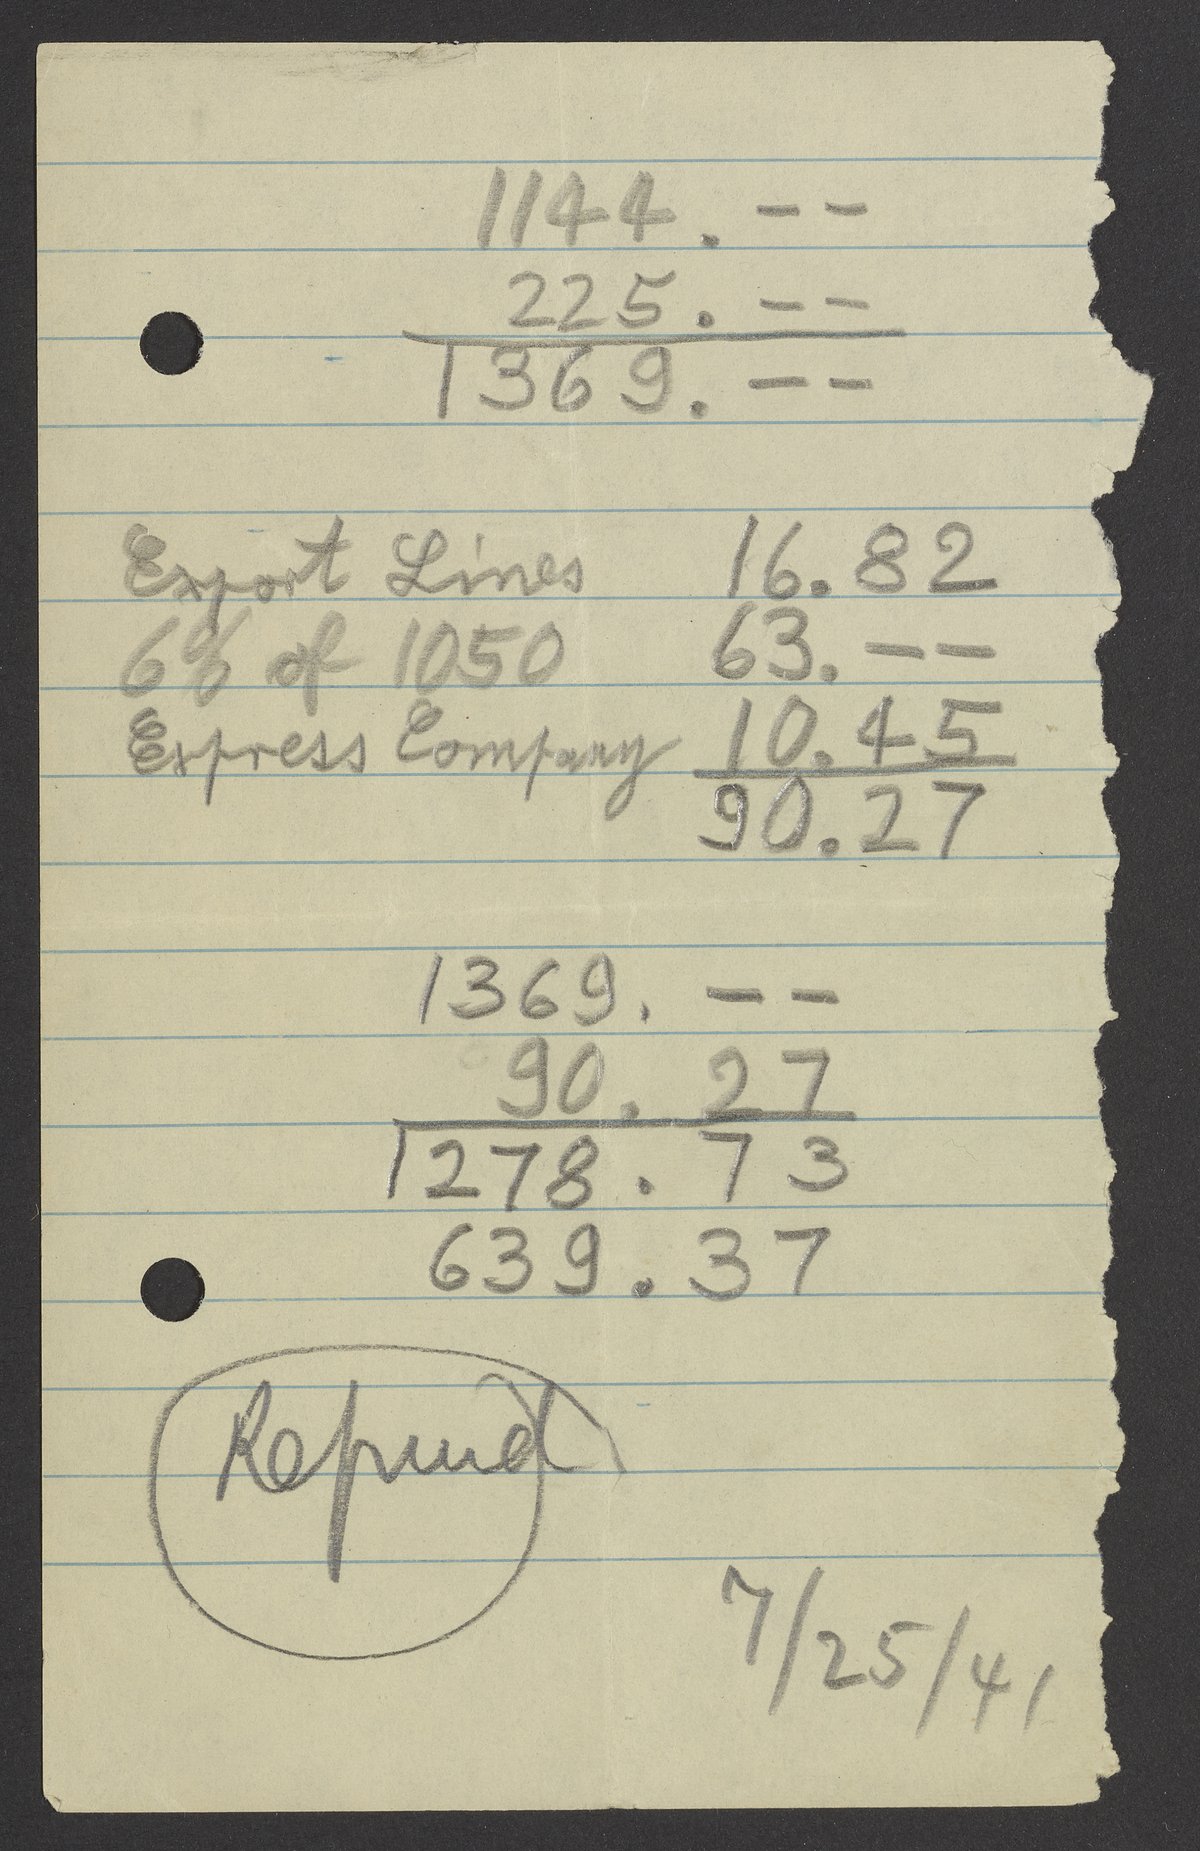 1144. --
225. --
1369. --
Export Lines 16.82
6% of 1050 63. --
Express Company 10.45
90.27
1369. --
90. 27
1278. 73
639. 37
Refund
7/25/41